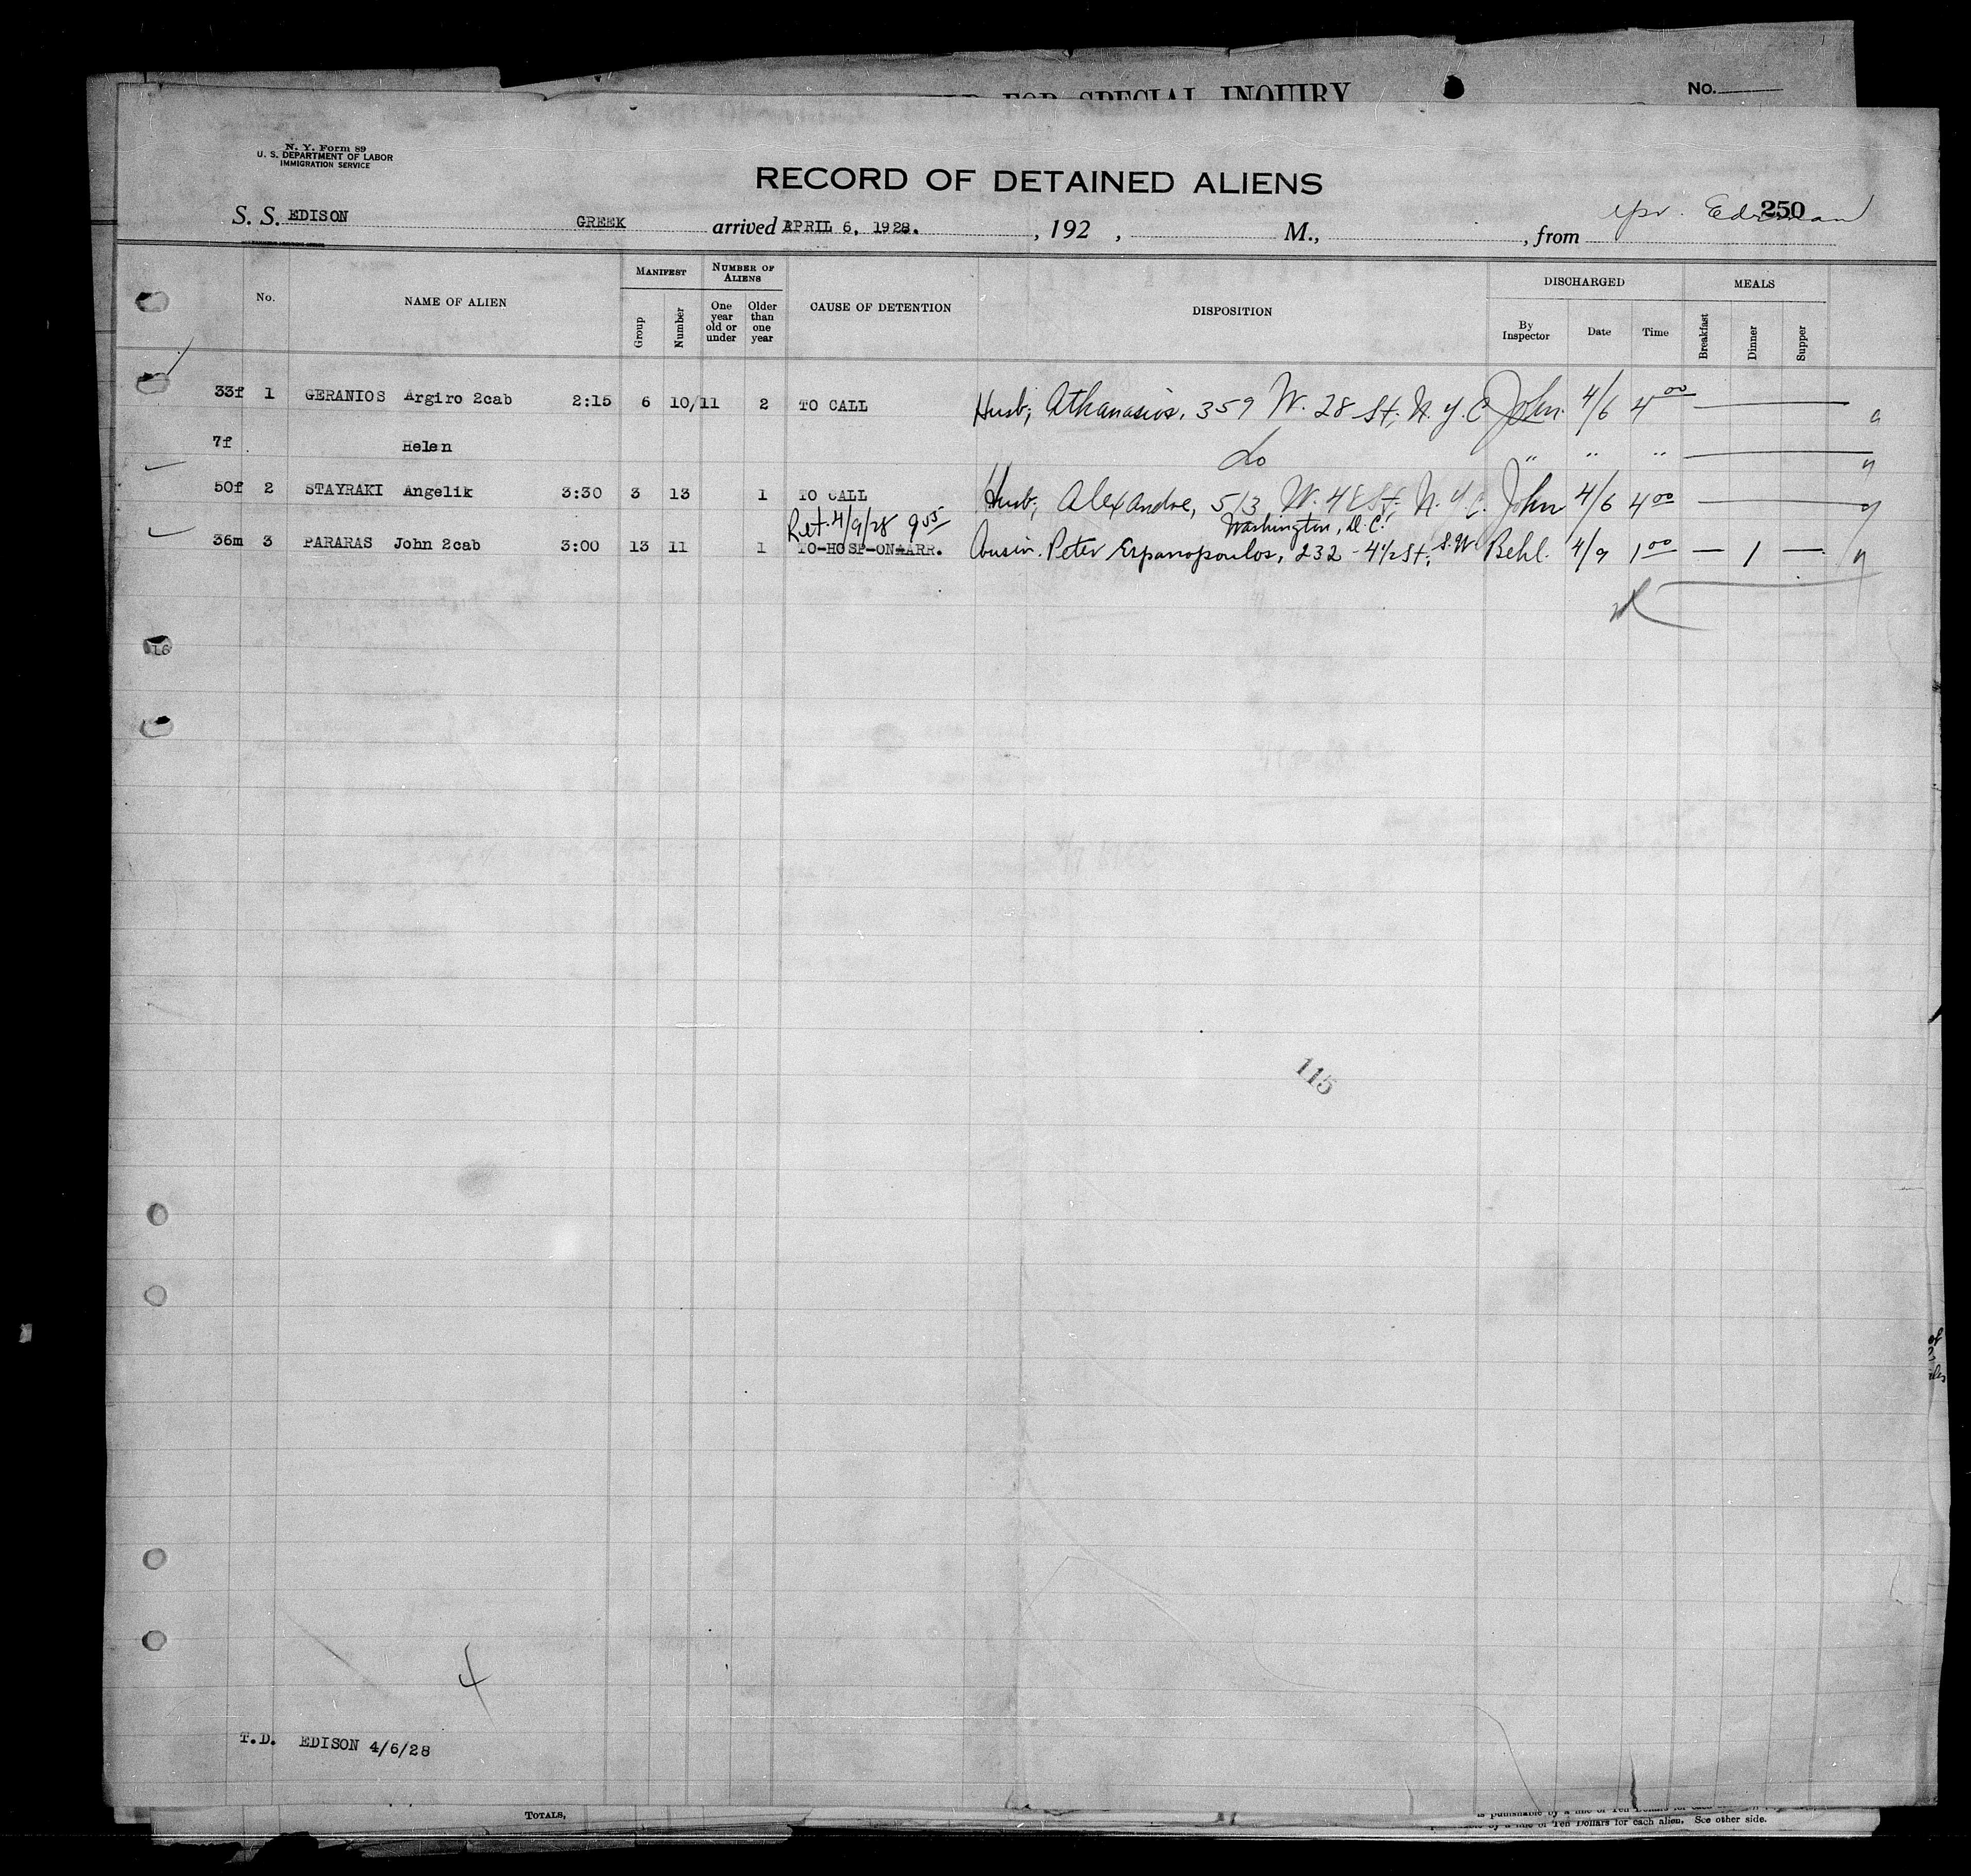 FOR SPECIAL INQUIRY
No.
N. Y. Form 89
U. S. DEPARTMENT OF LABOR
IMMIGRATION SERVICE
RECORD OF DETAINED ALIENS
250
S. S. EDISON GREEK arrived APRIL 6, 1928. , 192 , M., , from
No. NAME OF ALIEN MANIFEST Group Number NUMBER OF ALIENS One year old or under Older than one year CAUSE OF DETENTION DISPOSITION DISCHARGED By Inspector Date Time MEALS Breakfast Dinner Supper
33f 1 GERANIOS Argiro 2cab 2:15 6 10/11 2 TO CALL Husb; Athanasios, 359 W. 28 St, N.Y.C John 4/6 4 00
7f Helen Do " " "
50f 2 STAYRAKI Angelik 3:30 3 13 1 TO CALL Husb; Alexandre, 513 W. 48 St, N.Y.C. John 4/6 4 00
Ret. 4/9/28 9 05 Washington, D.C.
36m 3 PARARAS John 2cab 3:00 13 11 1 TO-HOSP-ON-ARR. Cousin. Peter Espanopoulos, 232 - 4 1/2 St, S.W Behl. 4/9 1 00 — 1 —
16
115
4
T.D. EDISON 4/6/28
TOTALS,
is punishable by a fine of Ten Dollars for each
by a fine of Ten Dollars for each alien. See other side.